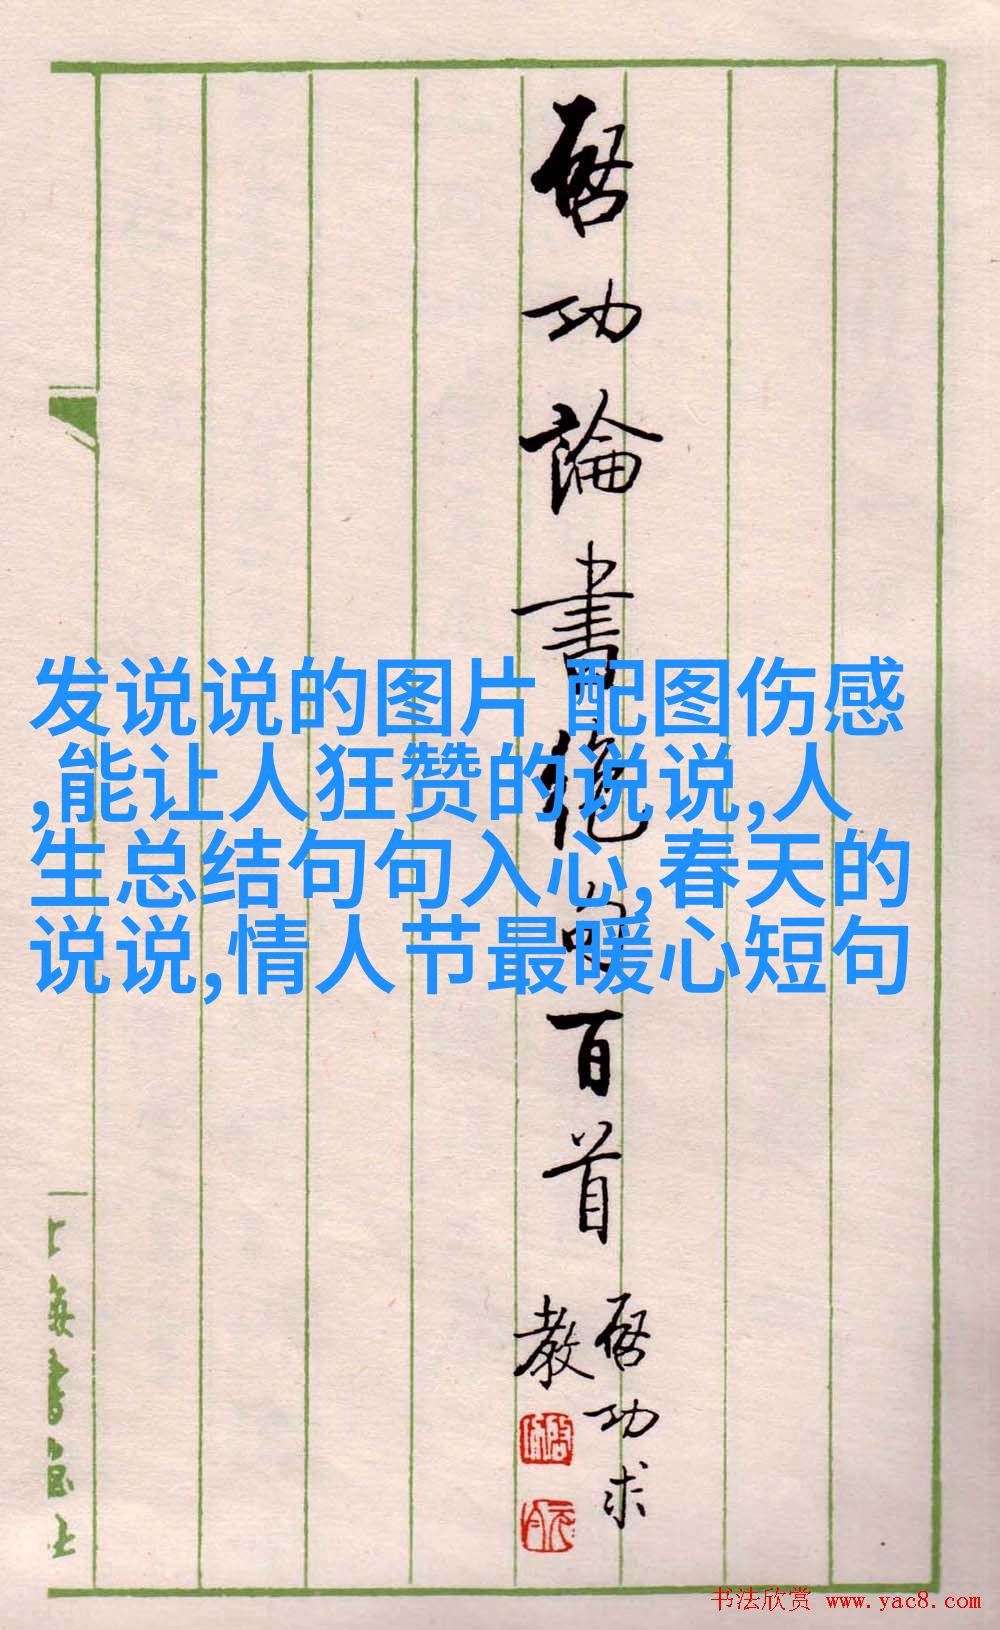 啓功論書絶句百首
啓功求
教
发说说的图片 配图伤感
,能让人狂赞的说说,人
生总结句句入心,春天的
说说,情人节最暖心短句
上海書画社
书法欣赏 www.yac8.com